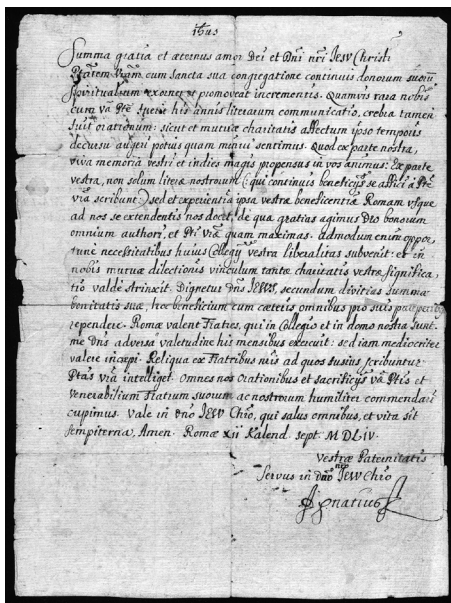 Ihus
Summa gratia et æternus amor Dei et Dñi nri JESV Christi
Ptãtem Vrãm cum sancta sua congregatione continuis donorum suorũ
spiritualium exornet et promoveat incrementis. Quamvis rara nobis
cum Vã Ptẽ fuerit his annis literarum communicatio, crebra tamen
fuit orationum: sicut et mutuæ charitatis affectum ipso temporis
decursu augeri potius quam minui sentimus. Quod ex parte nostra,
viva memoria vestri et indies magis propensus in vos animus: Ex parte
vestra, non solum literæ nostrorum (: qui continuis beneficijs se affici à Ptẽ
vrã scribunt:) sed et experientia ipsa vestræ beneficentiæ Romam usque
ad nos se extendentis nos docet; de qua gratias agimus Deo bonorum
omnium authori, et Pti Vrã quam maximas. admodum enim oppor
tune necessitatibus huius Collegij vestra liberalitas subvenit: et in
nobis mutuæ dilectionis vinculum tantæ charitatis vestræ significa
tio valde strinxit. Dignetur dñs JESVS, secundum divitias summæ
bonitatis suæ, hoc beneficium cum cæteris omnibus pro suis
rependere. Romæ valent Fratres, qui in Collegio et in domo nostra sunt.
me Dñs adversa valetudine his mensibus exercuit: sed iam mediocriter
valere incæpi. Reliqua ex Fratribus nris ad quos fusius scribuntur
Ptas vrã intelliget. omnes nos orationibus et sacrificijs vã Ptis et
Venerabilium Fratrum suorum ac nostrorum humiliter commendari
cupimus. Vale in dño JESV Chro, qui salus omnibus, et vita sit
sempiterna, Amen. Romæ xii Kalend. sept. MDLIV.
Vestræ Paternitatis
Servus in dño nro JESV Chro
Ignatius